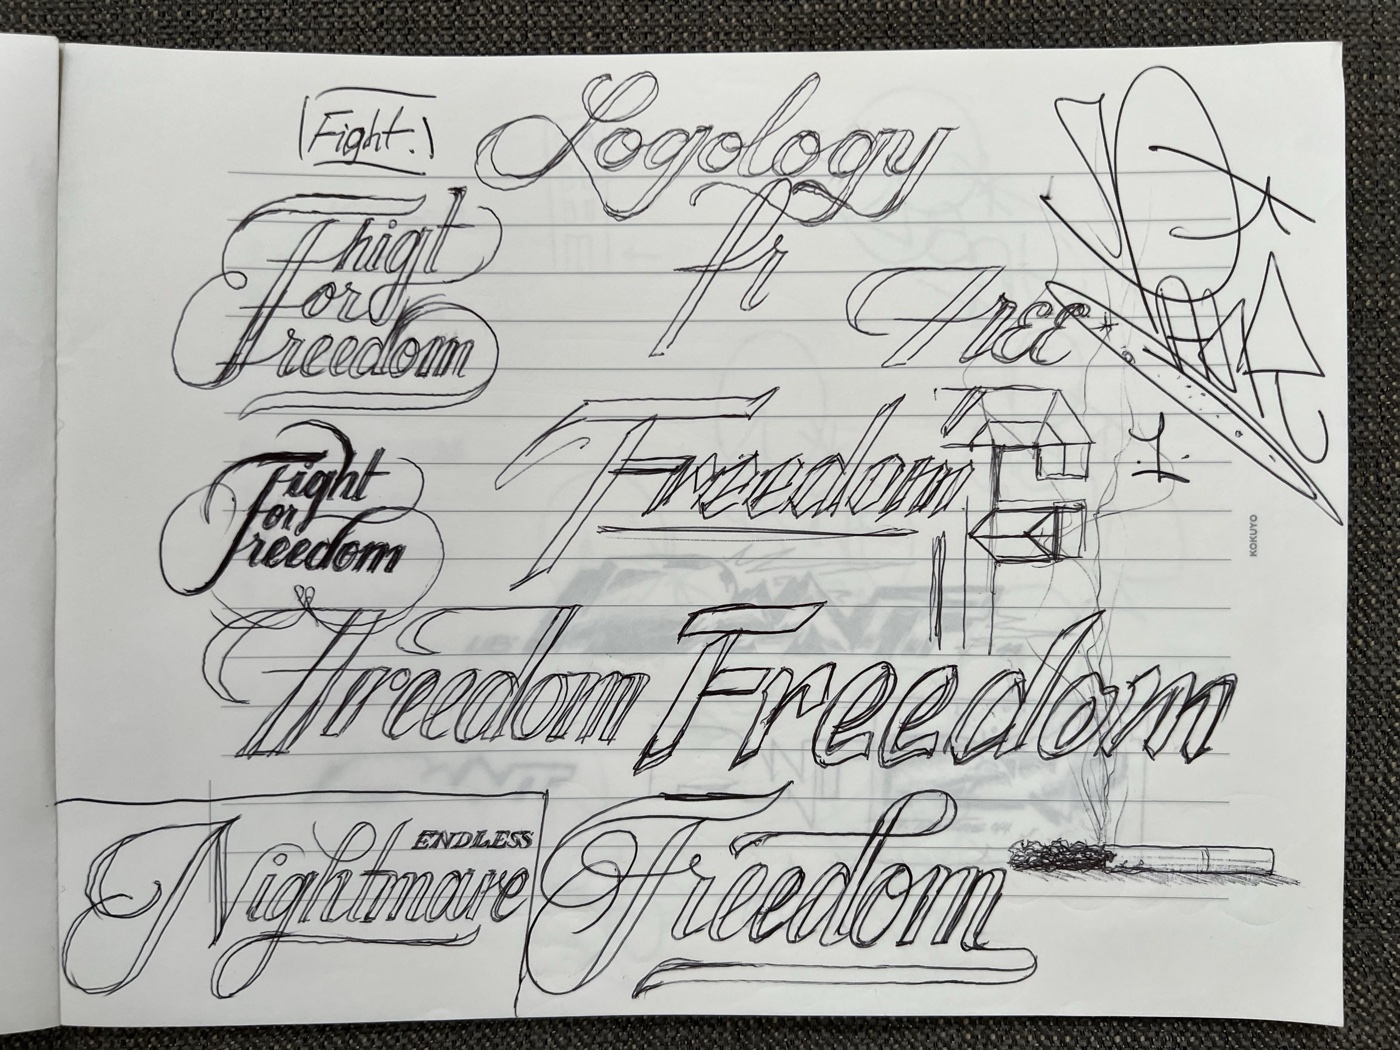 Fight.
Logology
Fhigt
or
Freedom
Fr
Free
Fight
For
Freedom
Freedom
1.
KOKUYO
Freedom
Freedom
ENDLESS
Nightmare
Freedom